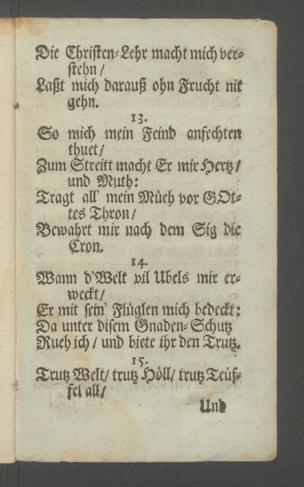 Die Christen-Lehr macht mich ver-
stehn/
Laßt mich darauß ohn Frucht nit
gehn.
13.
So mich mein Feind anfechten
thuet/
Zum Streitt macht Er mir Hertz/
und Muth:
Tragt all' mein Müeh vor GOt-
tes Thron/
Bewahrt mir nach dem Sig die
Cron.
14.
Wann d'Welt vil Ubels mir er-
weckt/
Er mit sein' Flüglen mich bedeckt:
Da unter disem Gnaden-Schutz
Rueh ich/ und biete ihr den Trutz.
15.
Trutz Welt/ trutz Höll/ trutz Teüf-
fel all/
Und